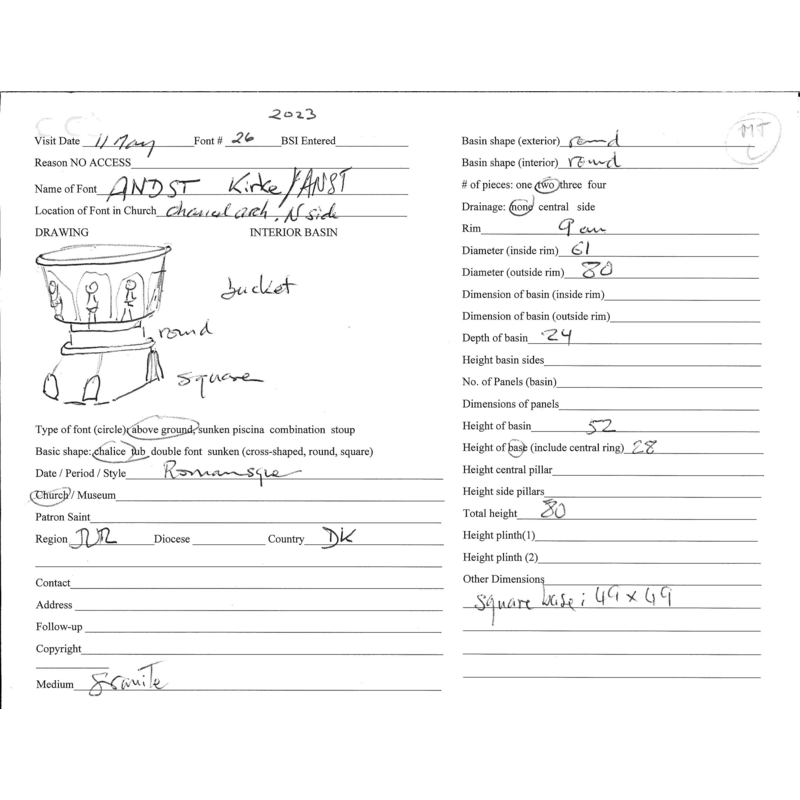 2023
Visit Date 11 May Font # 26 BSI Entered
Reason NO ACCESS
Name of Font ANDST Kirke/ANST
Location of Font in Church chancel arch, N side
DRAWING INTERIOR BASIN
bucket
round
square
Type of font (circle) above ground, sunken piscina combination stoup
Basic shape: chalice tub double font sunken (cross-shaped, round, square)
Date / Period / Style Romansque
Church / Museum
Patron Saint
Region JUR Diocese Country DK
Contact
Address
Follow-up
Copyright
Medium granite
MT
Basin shape (exterior) round
Basin shape (interior) round
# of pieces: one two three four
Drainage: none central side
Rim 9 cm
Diameter (inside rim) 61
Diameter (outside rim) 80
Dimension of basin (inside rim)
Dimension of basin (outside rim)
Depth of basin 24
Height basin sides
No. of Panels (basin)
Dimensions of panels
Height of basin 52
Height of base (include central ring) 28
Height central pillar
Height side pillars
Total height 80
Height plinth(1)
Height plinth (2)
Other Dimensions
square base: 49 x 49